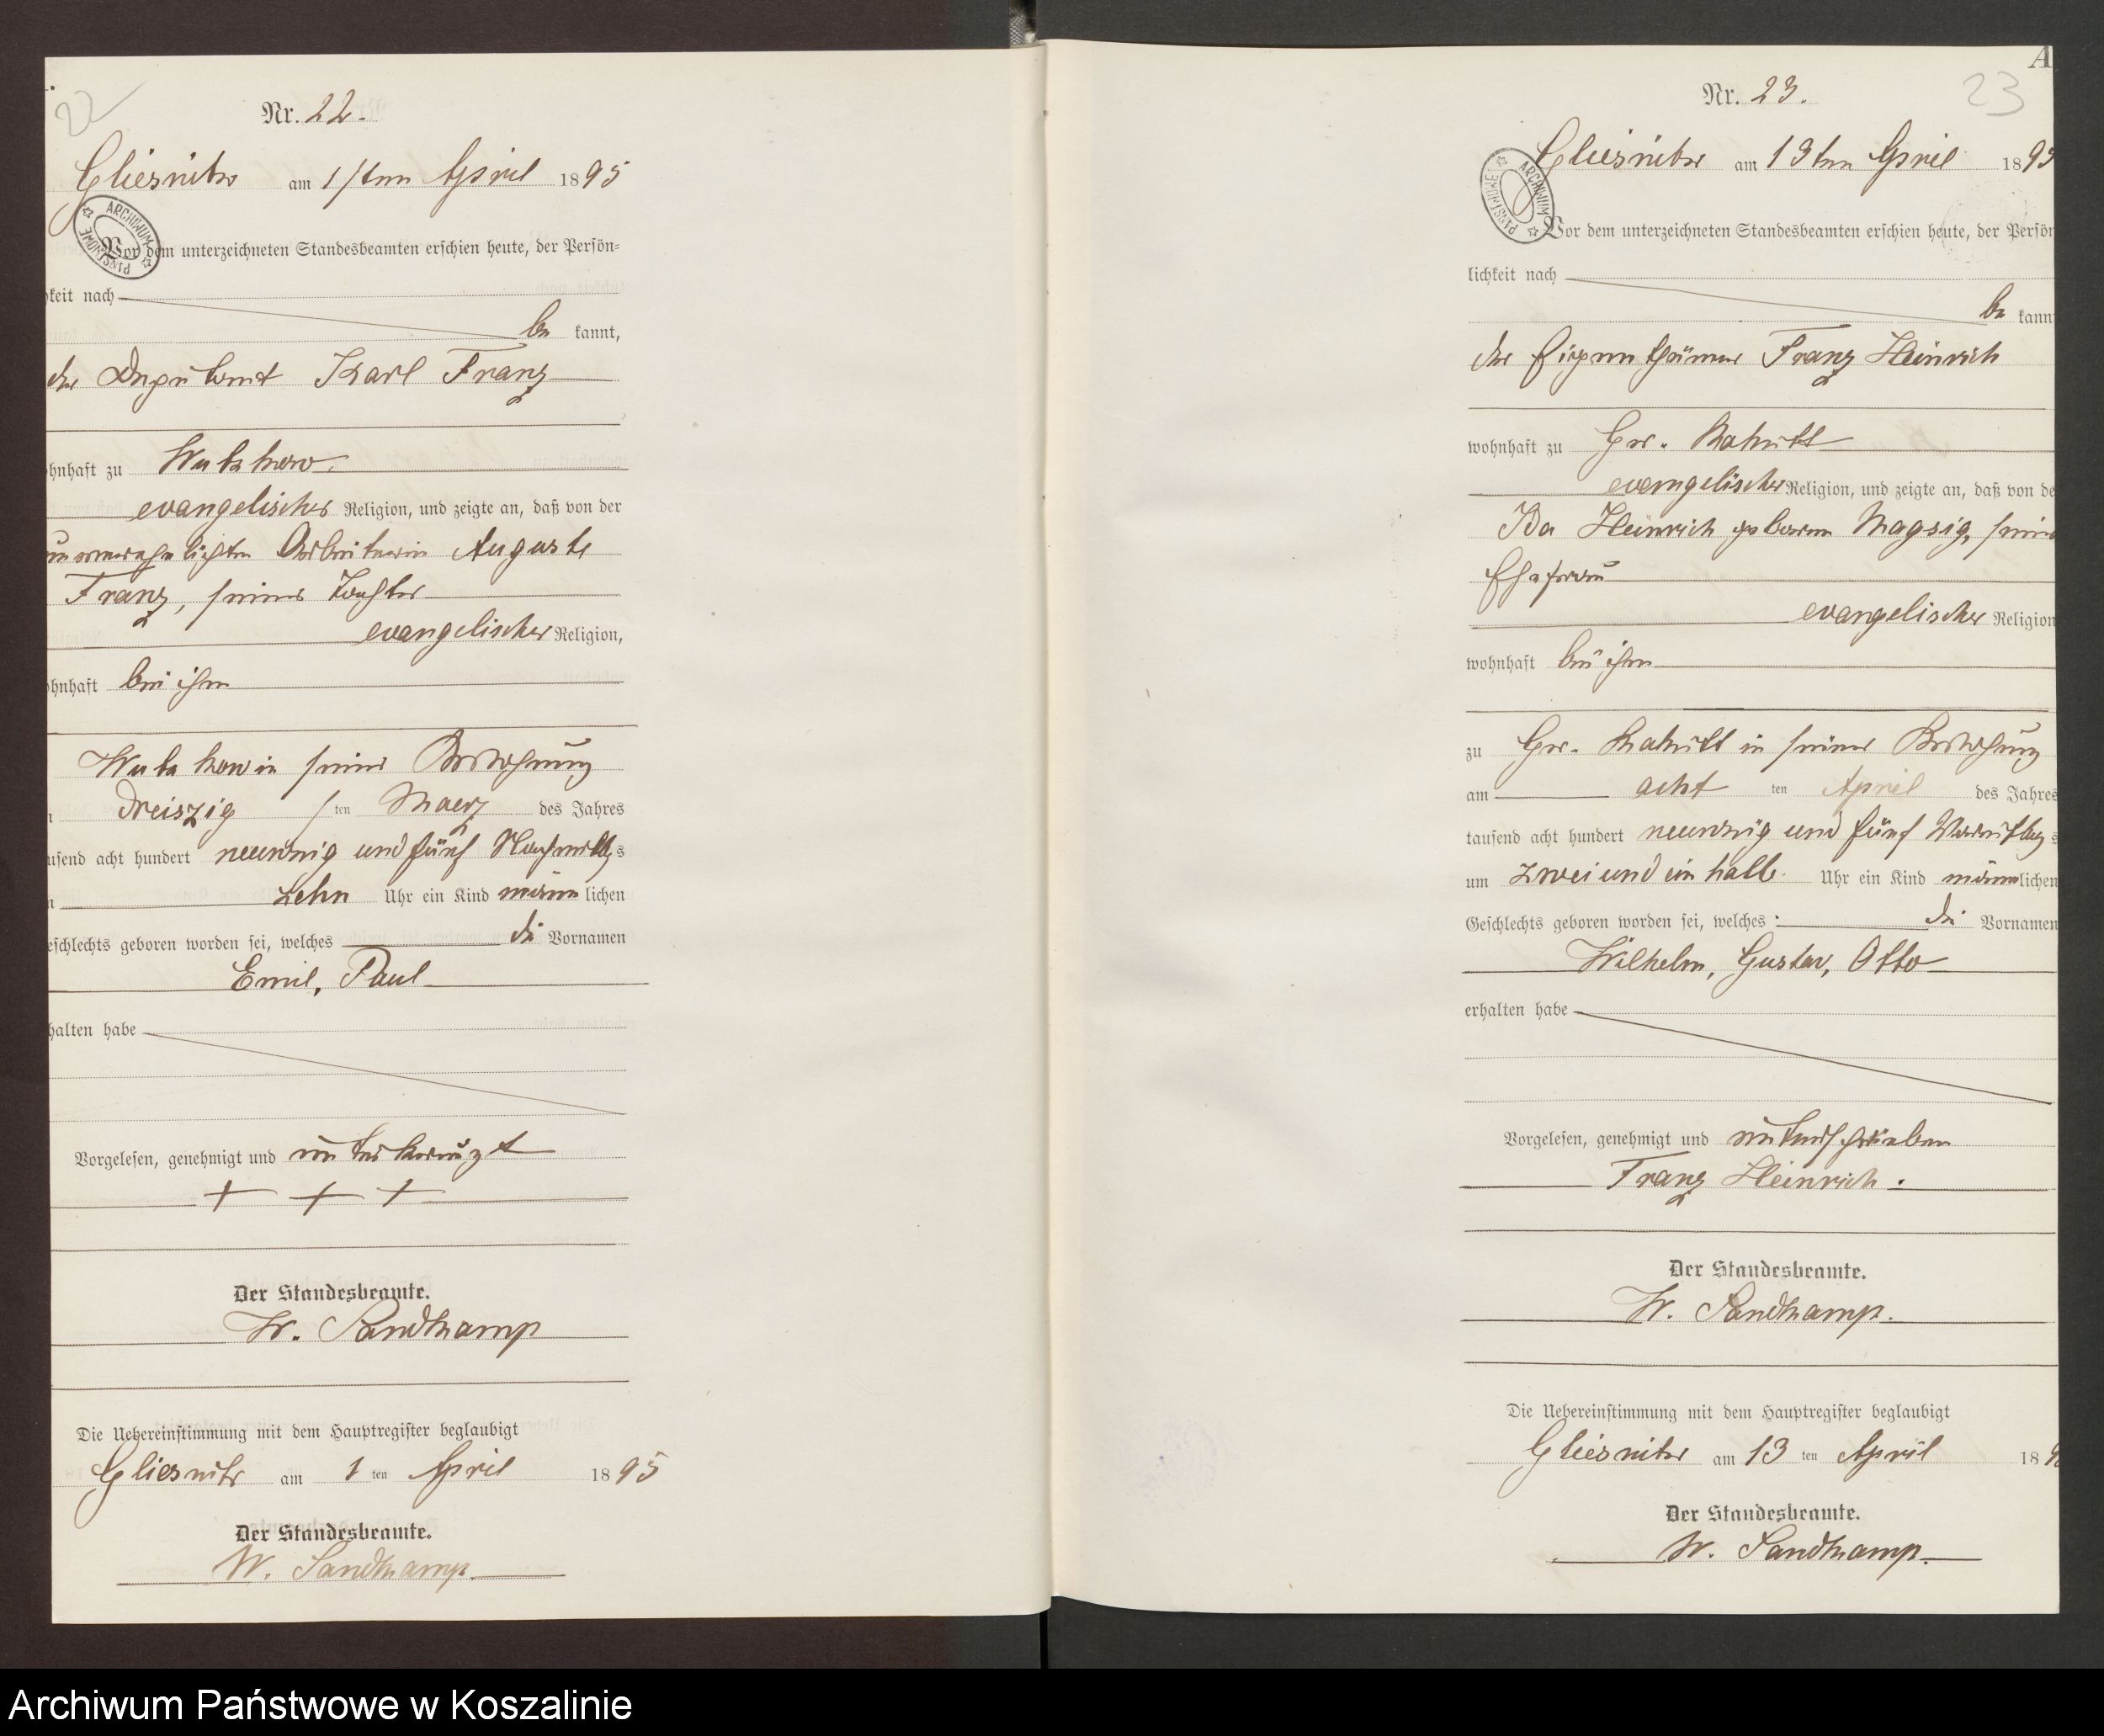 22
Nr. 22.
Gliesnitz am 1sten April 1895
ARCHIWUM PAŃSTWOWE
Vor dem unterzeichneten Standesbeamten erschien heute, der Persön-
keit nach
be kannt,
der Deputant Karl Franz
hnhaft zu Wutzkow
evangelischer Religion, und zeigte an, daß von der
unverehelichten Arbeiterin Auguste
Franz, seiner Tochter
evangelischer Religion,
hnhaft bei ihm
Wutzkow in seiner Behausung
dreiszig sten Maerz des Jahres
usend acht hundert neunzig und fünf Nachmittags
zehn Uhr ein Kind männlichen
eschlechts geboren worden sei, welches die Vornamen
Emil, Paul
halten habe
Vorgelesen, genehmigt und unterkreuzt
+ + +
Der Standesbeamte.
W. Sandkamp
Die Uebereinstimmung mit dem Hauptregister beglaubigt
Gliesnitz am 1 ten April 1895
Der Standesbeamte.
W. Sandkamp.
A
Nr. 23.
23
Gliesnitz am 13ten April 1895
ARCHIWUM PAŃSTWOWE
Vor dem unterzeichneten Standesbeamten erschien heute, der Persön
lichkeit nach
be kann
der Eigenthümer Franz Heinrich
wohnhaft zu Gr.
evangelischer Religion, und zeigte an, daß von de
Ida Heinrich geboren Magsig, seine
Ehefrau
evangelischer Religion
wohnhaft bei ihm
zu Gr. in seiner Behausung
am acht ten April des Jahres
tausend acht hundert neunzig und fünf Vormittags
um zwei und ein halb Uhr ein Kind männlichen
Geschlechts geboren worden sei, welches die Vornamen
Wilhelm, Gustav, Otto
erhalten habe
Vorgelesen, genehmigt und unterschrieben
Franz Heinrich.
Der Standesbeamte.
W. Sandkamp.
Die Uebereinstimmung mit dem Hauptregister beglaubigt
Gliesnitz am 13 ten April 189
Der Standesbeamte.
W. Sandkamp.
Archiwum Państwowe w Koszalinie